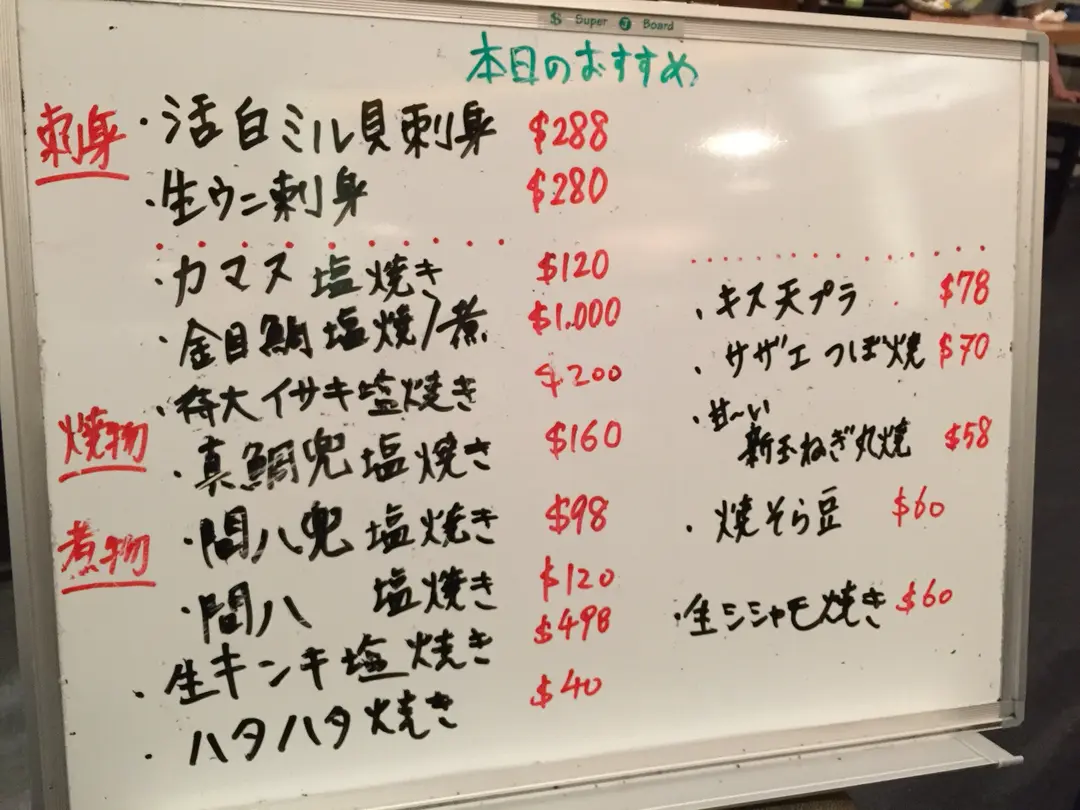 $ Super J Board
本日のおすすめ
刺身
・活白ミル貝刺身 $288
・生ウニ刺身 $280
・カマス 塩焼き $120
・金目鯛塩焼/煮 $1.000
・特大イサキ塩焼き $200
焼物
・真鯛兜塩焼き $160
煮物
・間八兜 塩焼き $98
・間八 塩焼き $120
・生キンキ塩焼き $498
・ハタハタ焼き $40
・キス天プラ $78
・サザエ つぼ焼 $70
・甘〜い
新玉ねぎ丸焼 $58
・焼そら豆 $60
・生シシャモ焼き $60